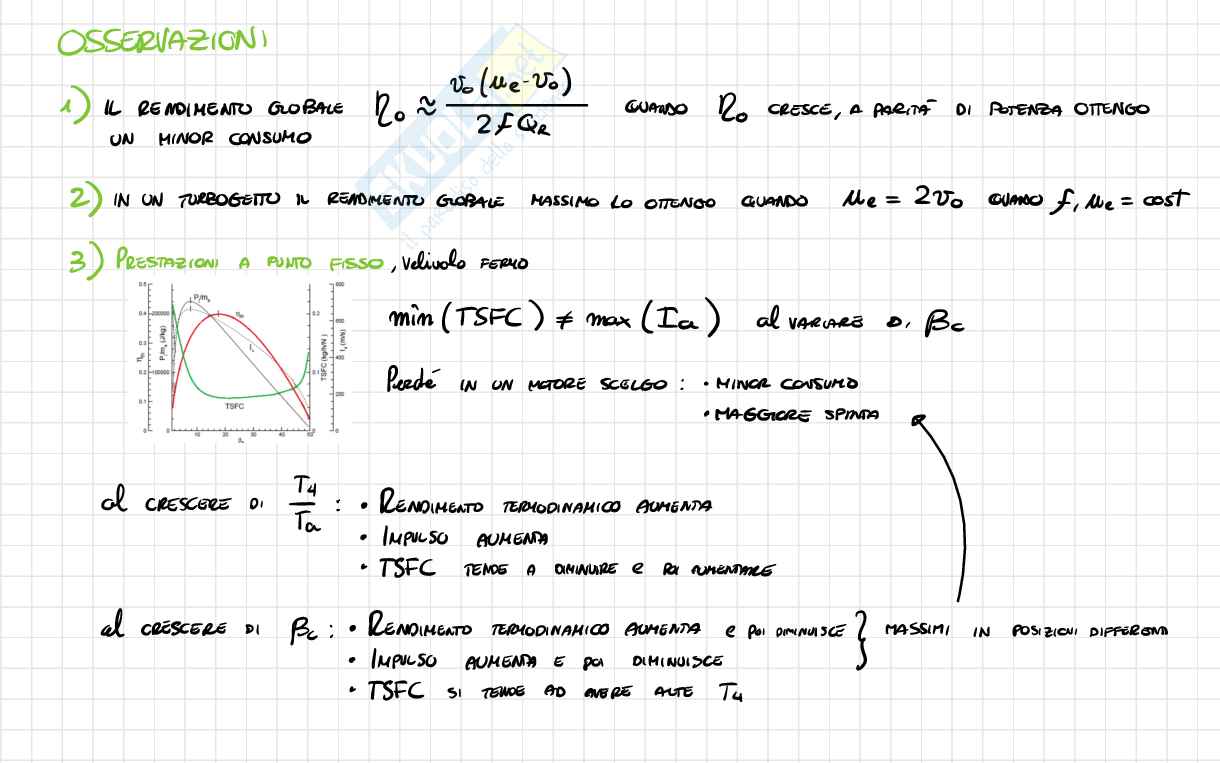 OSSERVAZIONI
1) IL RENDIMENTO GLOBALE η₀ ≈ v₀(ue-v₀) / 2fQR QUANDO η₀ CRESCE, A PARITÀ DI POTENZA OTTENGO
UN MINOR CONSUMO
2) IN UN TURBOGETTO IL RENDIMENTO GLOBALE MASSIMO LO OTTENGO QUANDO ue = 2v₀ QUANDO f, ue = cost
3) PRESTAZIONI A PUNTO FISSO, Velivolo FERMO
min (TSFC) ≠ max (Ia) al VARIARE DI βc
Perché IN UN MOTORE SCELGO : • MINOR CONSUMO
• MAGGIORE SPINTA
TSFC
10 20 30 40
al CRESCERE DI T4/Ta : • RENDIMENTO TERMODINAMICO AUMENTA
• IMPULSO AUMENTA
• TSFC TENDE A DIMINUIRE e POI AUMENTARE
al CRESCERE DI βc : • RENDIMENTO TERMODINAMICO AUMENTA e POI DIMINUISCE } MASSIMI IN POSIZIONI DIFFERENTI
• IMPULSO AUMENTA E POI DIMINUISCE
• TSFC SI TENDE AD AVERE ALTE T4